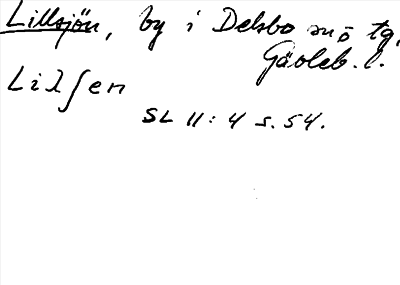 Lillsjön, by i Delsbo sn o tg,
Gävleb. l.
Lilʃen
SL II: 4 s. 54.